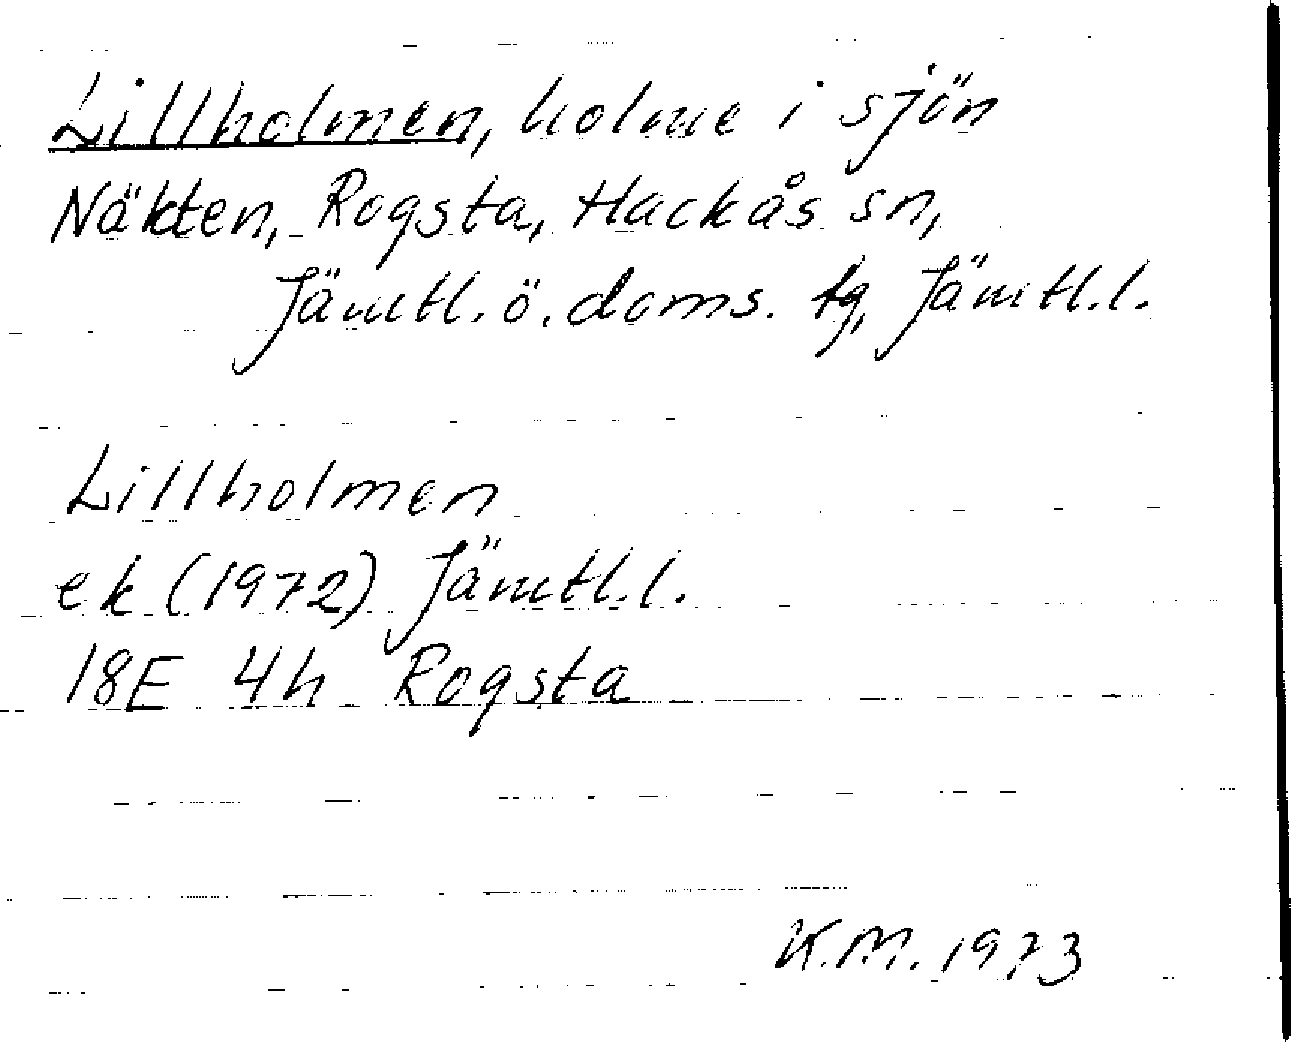 Lillholmen, holme i sjön
Näkten, Rogsta, Hackås sn,
Jämtl. ö. doms. tg, Jämtl.l.
Lillholmen
ek (1972) Jämtl.l.
18E 4h Rogsta
K.M. 1973